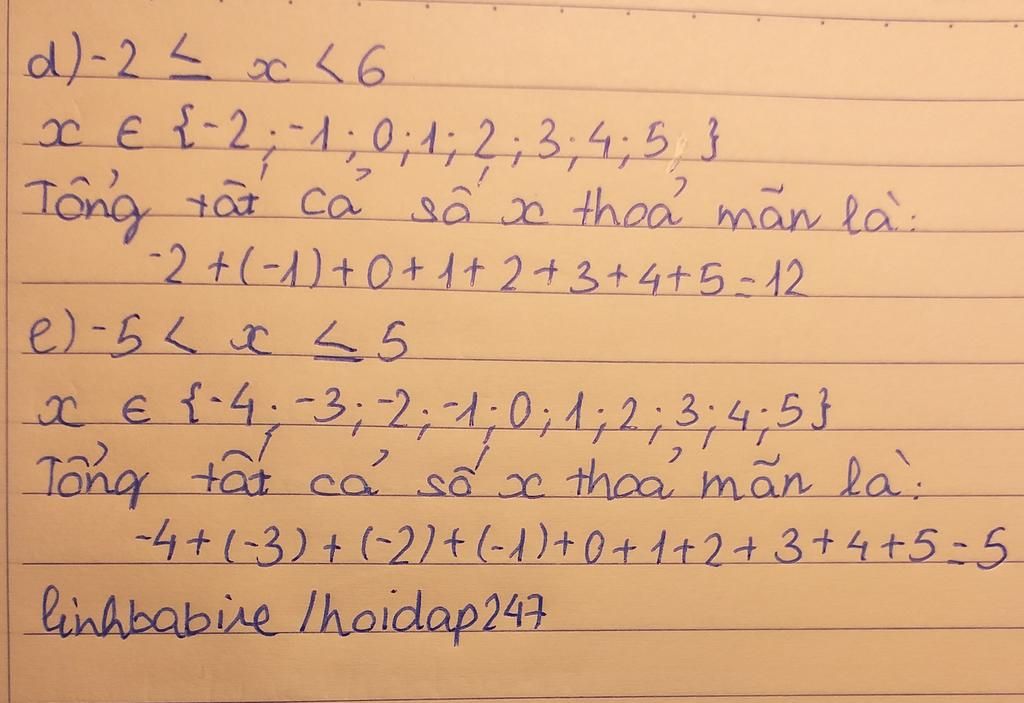 d) -2 ≤ x < 6
x ∈ {-2; -1; 0; 1; 2; 3; 4; 5; }
Tổng tất cả số x thoả mãn là:
-2 + (-1) + 0 + 1 + 2 + 3 + 4 + 5 = 12
e) -5 < x ≤ 5
x ∈ {-4; -3; -2; -1; 0; 1; 2; 3; 4; 5}
Tổng tất cả số x thoả mãn là:
-4 + (-3) + (-2) + (-1) + 0 + 1 + 2 + 3 + 4 + 5 = 5
linhbabie /hoidap247